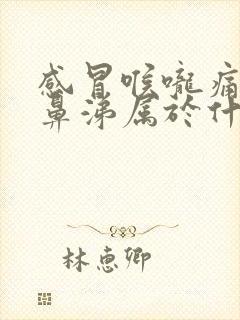 感冒喉嚨痛
鼻涕属於什
林惠卿